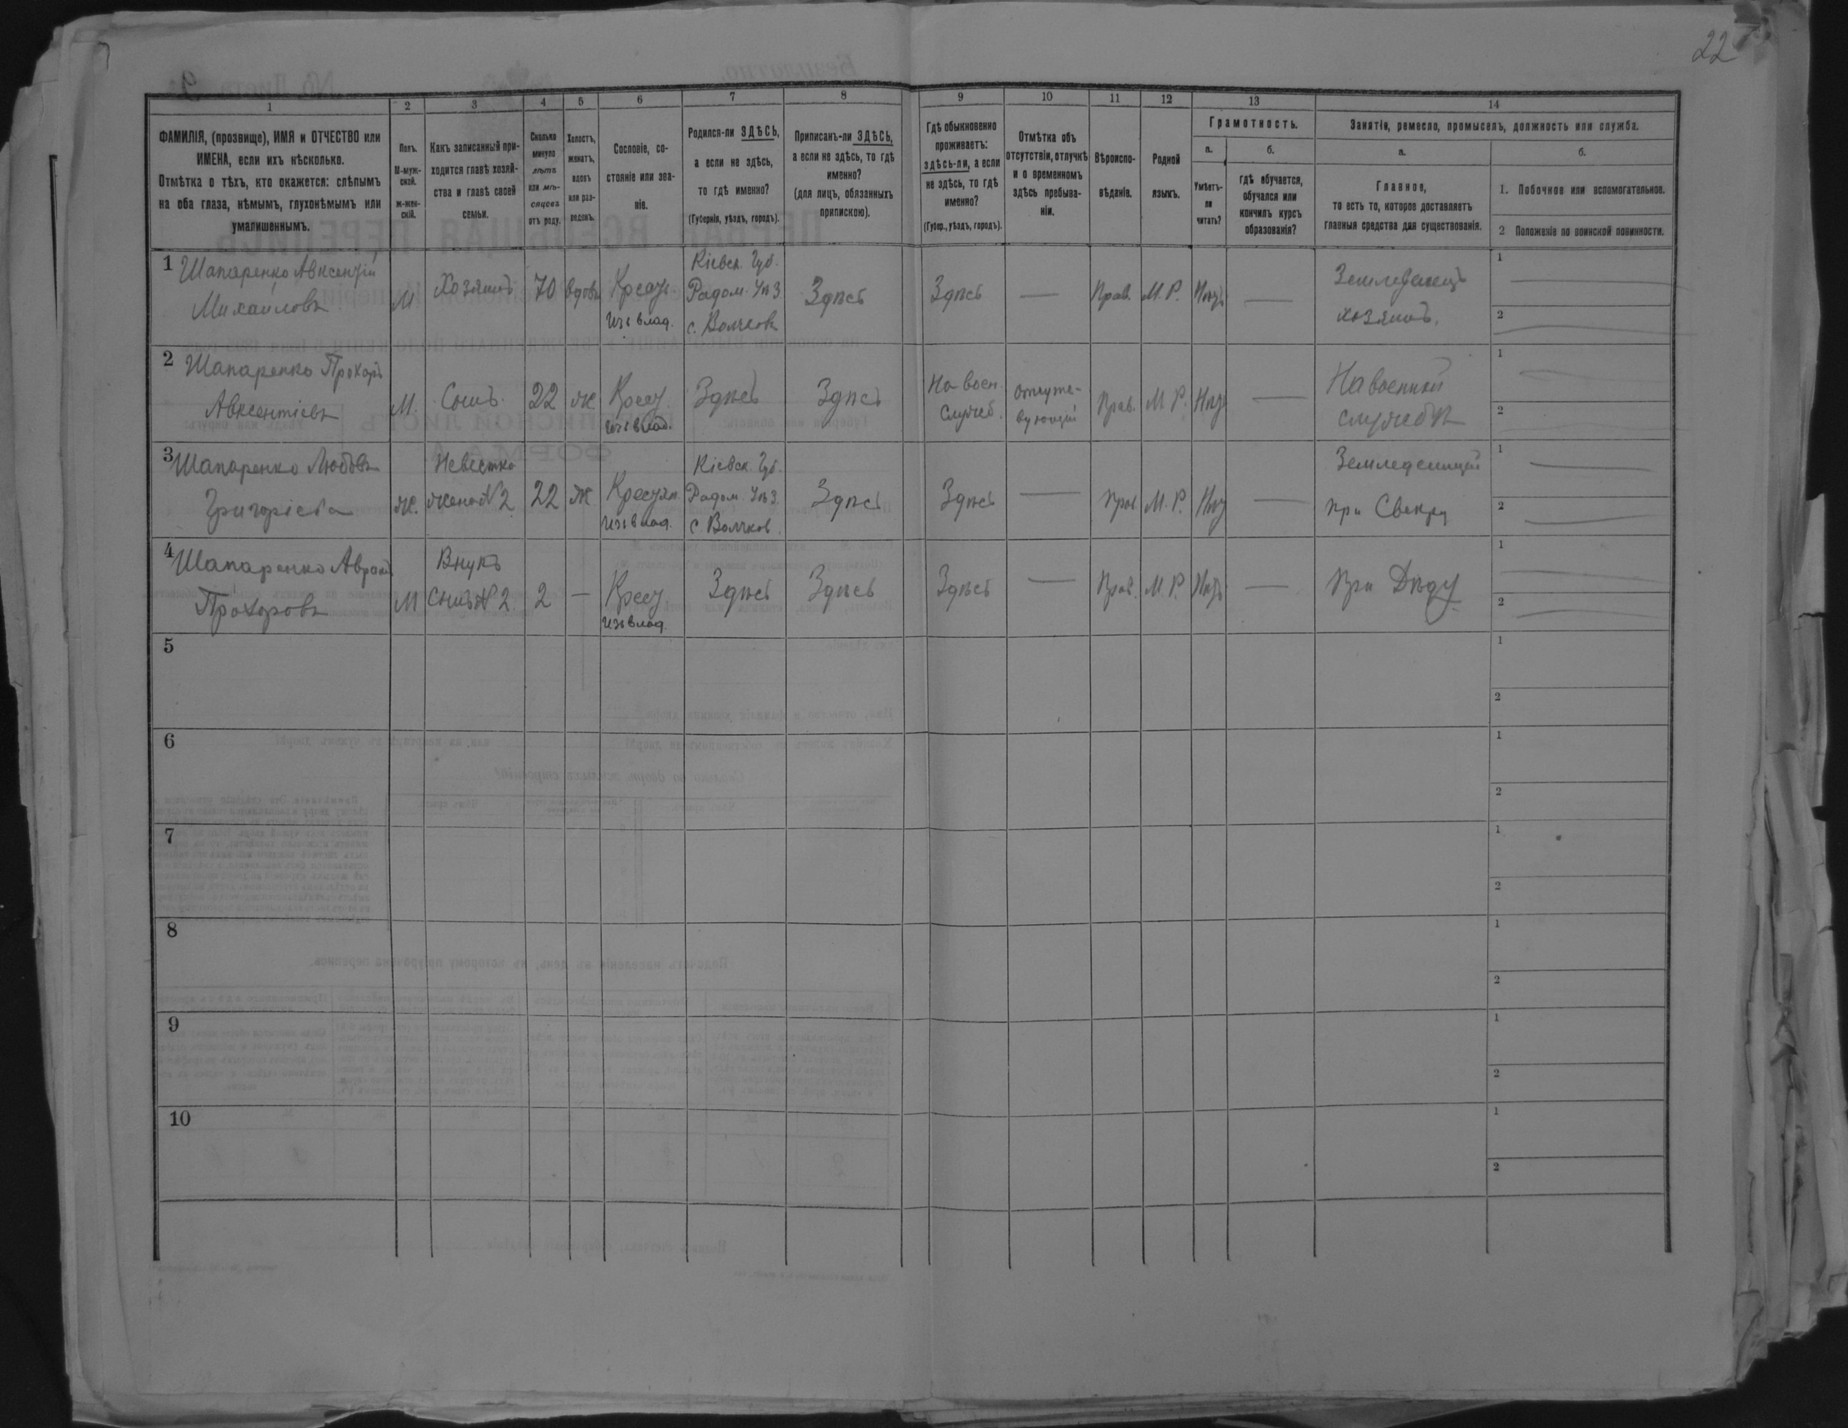 22
1 2 3 4 5 6 7 8 9 10 11 12 13 14
ФАМИЛІЯ, (прозвище), ИМЯ и ОТЧЕСТВО или
ИМЕНА, если ихъ нѣсколько.
Отмѣтка о тѣхъ, кто окажется: слѣпымъ
на оба глаза, нѣмымъ, глухонѣмымъ или
умалишеннымъ.
Полъ.
М-муж-
ской.
ж-жен-
скій.
Какъ записанный при-
ходится главѣ хозяй-
ства и главѣ своей
семьи.
Сколько
минуло
лѣтъ
или мѣ-
сяцевъ
отъ роду.
Холостъ,
женатъ,
вдовъ
или раз-
веденъ.
Сословіе, со-
стояніе или зва-
ніе.
Родился-ли ЗДѢСЬ,
а если не здѣсь,
то гдѣ именно?
(Губернія, уѣздъ, городъ).
Приписанъ-ли ЗДѢСЬ,
а если не здѣсь, то гдѣ
именно?
(для лицъ, обязанныхъ
припискою).
Гдѣ обыкновенно
проживаетъ:
здѣсь-ли, а если
не здѣсь, то гдѣ
именно?
(Губер., уѣздъ, городъ).
Отмѣтка объ
отсутствіи, отлучкѣ
и о временномъ
здѣсь пребыва-
ніи.
Вѣроиспо-
вѣданіе.
Родной
языкъ.
Грамотность.
а.
Умѣетъ-
ли
читать?
б.
гдѣ обучается,
обучался или
кончилъ курсъ
образованія?
Занятіе, ремесло, промыселъ, должность или служба.
а.
Главное,
то есть то, которое доставляетъ
главныя средства для существованія.
б.
1. Побочное или вспомогательное.
2 Положеніе по воинской повинности.
1 Шапаренко Авксентій
Михайловъ
М
Хозяинъ
70
вдовъ
Крестъ
изъ влад.
Кіевск. Губ.
Радом. Уѣз
с. Волчков
Здѣсь
Здѣсь
—
Прав.
М. Р.
Нѣтъ
—
Земледѣлецъ
хозяинъ.
1
2
2 Шапаренко Прохоръ
Авксентіевъ
М.
Сынъ
22
ж
Крест.
изъ влад.
Здѣсь
Здѣсь
На воен.
службѣ.
Отсутс-
вующій
Прав.
М Р.
Нѣтъ
—
На военной
службѣ
1
2
3 Шапаренко Любовь
Григоріева
ж.
Невестка
жена №2
22
ж
Крестьян.
изъ влад.
Кіевск. Губ.
Радом. Уѣз.
с Волчков.
Здѣсь
Здѣсь
—
Прав
М. Р.
Нѣт
—
Земледелицей
при Свекру
1
2
4 Шапаренко Аврамъ
Прохоровъ
М
Внукъ
Сынъ № 2
2
—
Крест
изъ влад.
Здѣсь
Здѣсь
Здѣсь
—
Прав.
М. Р.
Нѣтъ
—
При Дѣду
1
2
5
1
2
6
1
2
7
1
2
8
1
2
9
1
2
10
1
2